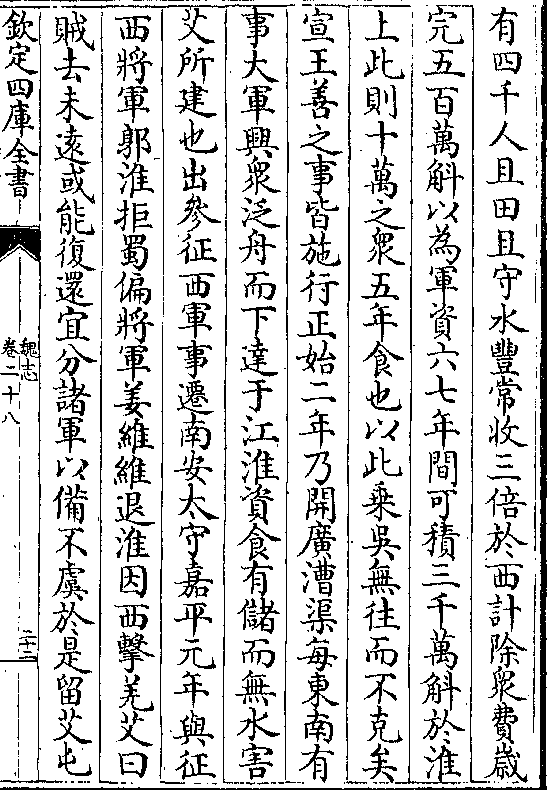 有四千人且田且守水豐常收三倍於西計除衆費歲
完五百萬斛以為軍資六七年間可積三千萬斛於淮
上此則十萬之衆五年食也以此乗吳無往而不克矣
宣王善之事皆施行正始二年乃開廣漕渠每東南有
事大軍興衆泛舟而下達于江淮資食有儲而無水害
艾所建也出參征西軍事遷南安太守嘉平元年與征
西將軍郭淮拒蜀偏將軍姜維維退淮因西擊羌艾曰
賊去未遠或能復還宜分諸軍以備不虞於是留艾屯
欽定四庫全書
魏志
卷二十八
二十二